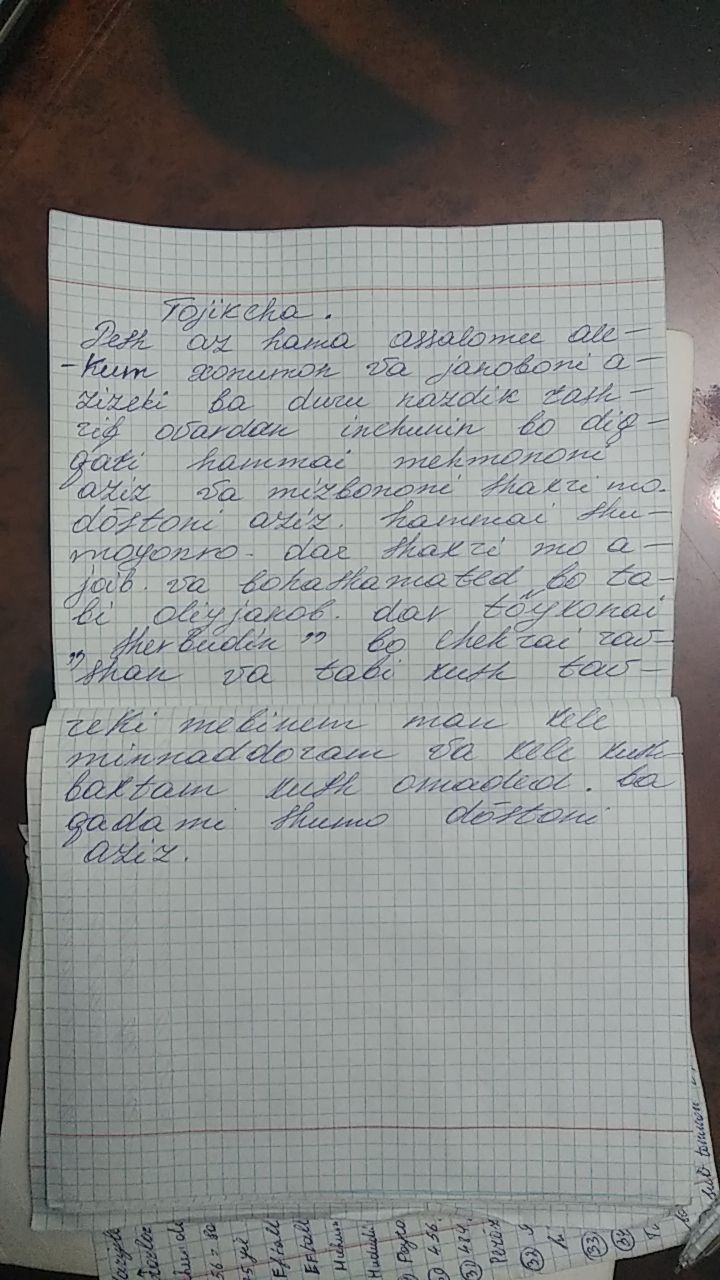 Tojikcha.
Pesh az hama assalomu ale-
-kum xonumon va janoboni a-
zizeki ba duru nazdik tash-
rif ovardan inchunin bo diq-
qati hammai mehmononi
aziz va mizbononi shaxri mo.
dōstoni aziz. hammai shu-
moyonro. dar shaxri mo a-
joib. va bohashamated bo ta-
bi oliyjanob. dar tōyxonai
"Sherbudin" bo chehrai rav-
shan va tabi xush tav-
reki mebinem man xele
minnaddoram va xele xush-
baxtam xush omaded. ba
qadami shumo dōstoni
aziz.